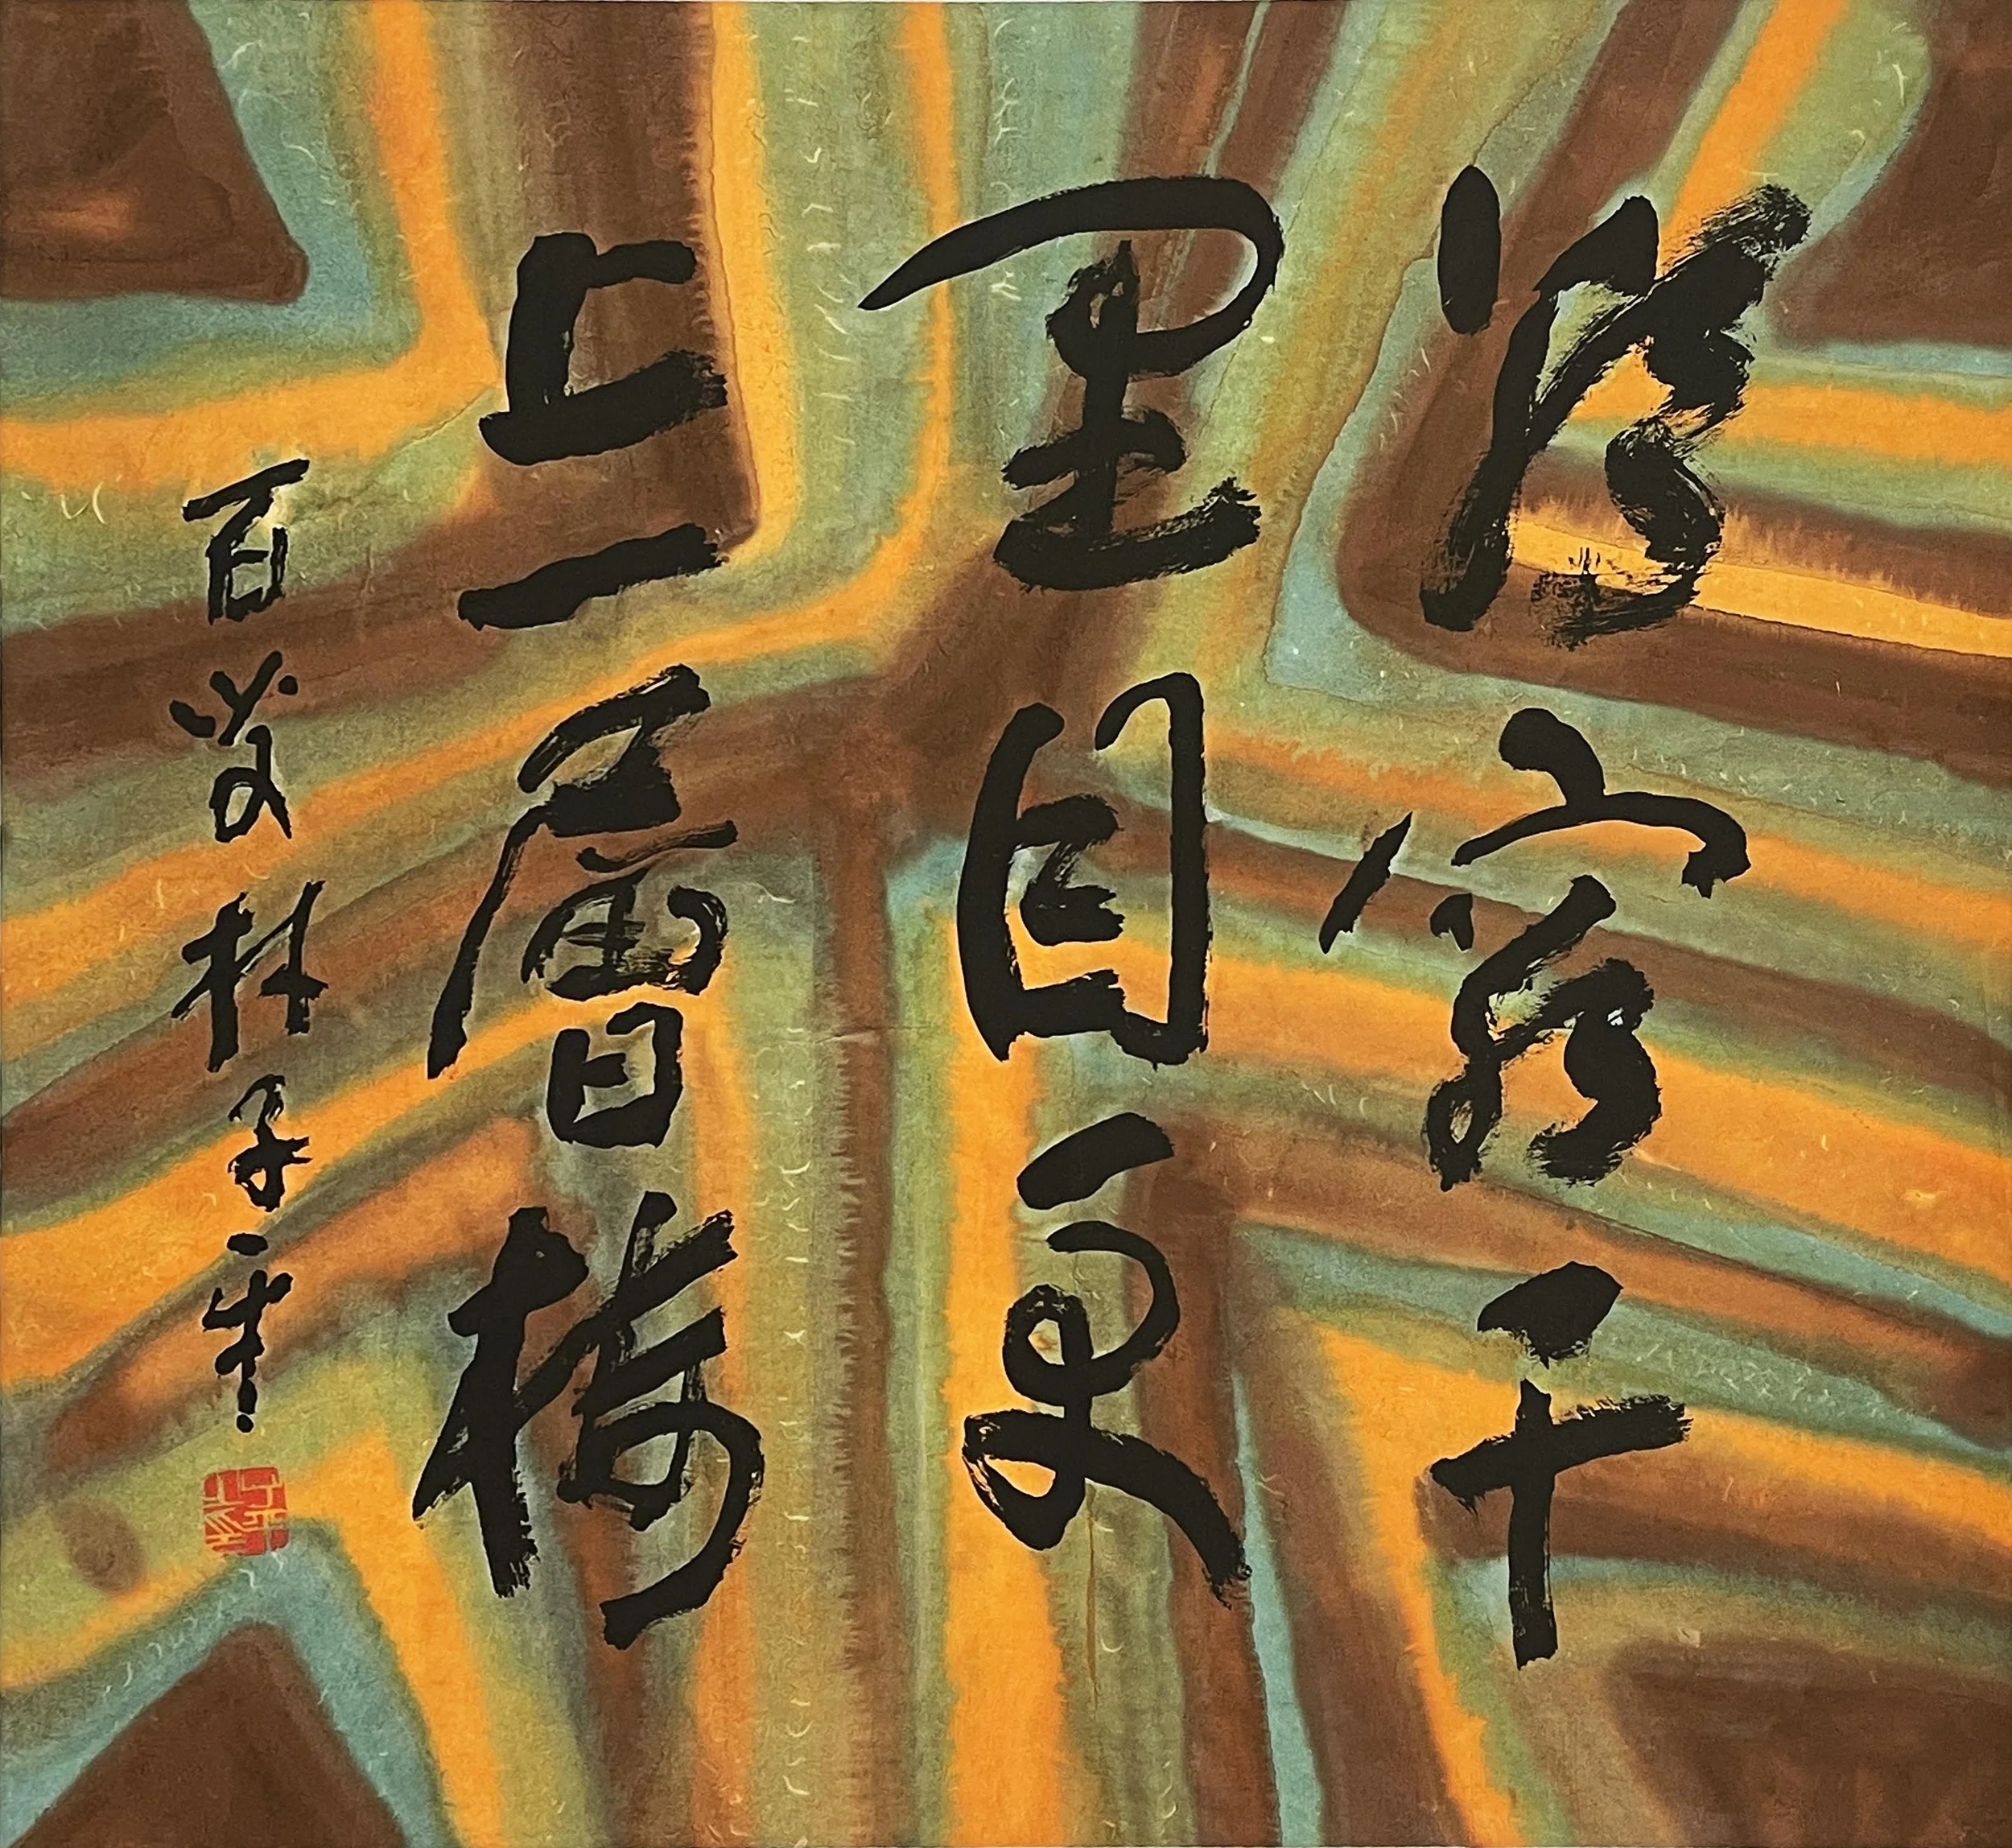 欲窮千
里目更
上一層樓
百岁林子平